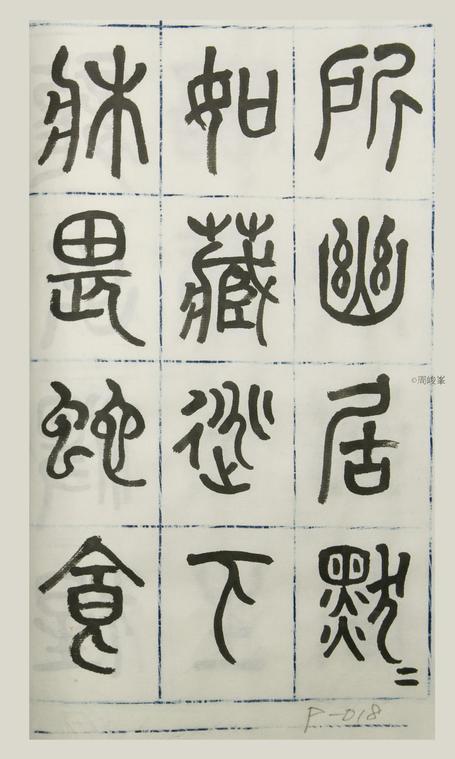 所幽居默〻
如藏逃下
牀畏蛇食
©周峻峯
P-018